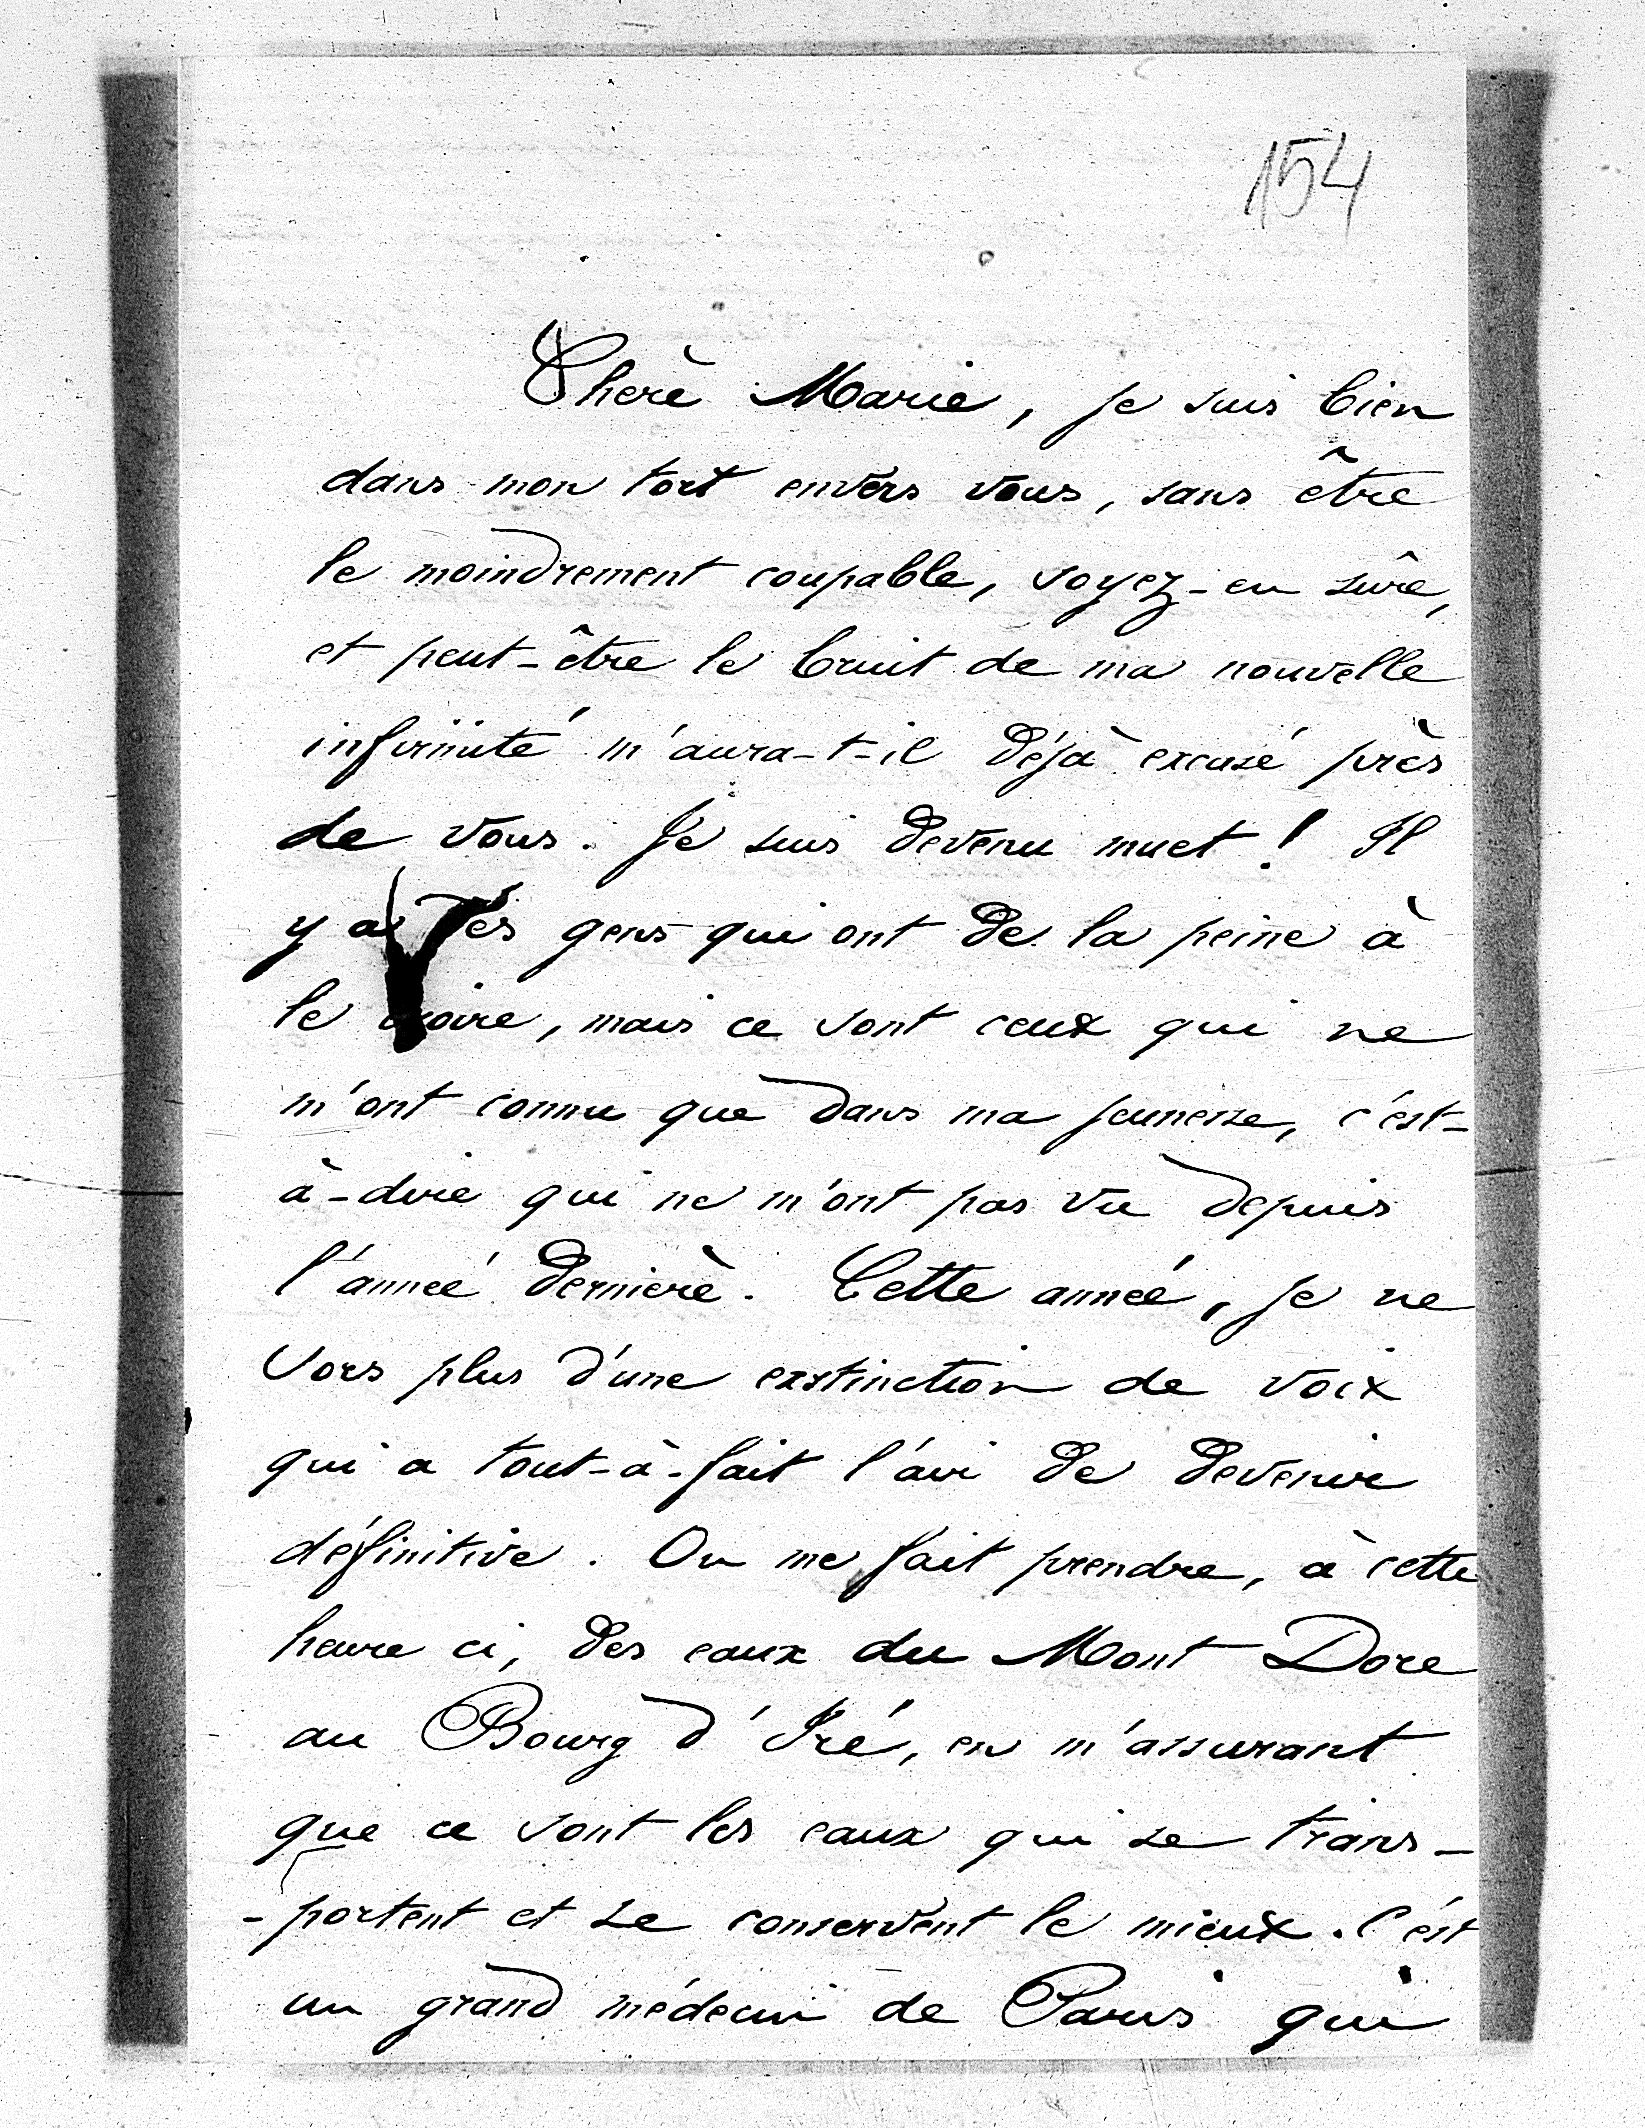 154
Chère Marie, je suis bien
dans mon tort envers vous, sans être
le moindrement coupable, soyez-en sûre,
et peut-être le bruit de ma nouvelle
infirmité m'aura-t-il déjà excusé près
de vous. Je suis devenu muet ! Il
y a des gens qui ont de la peine à
le croire, mais ce sont ceux qui ne
m'ont connu que dans ma jeunesse, c'est-
à-dire qui ne m'ont pas vu depuis
l'année dernière. Cette année, je ne
sors plus d'une exstinction de voix
qui a tout-à-fait l'air de devenir
définitive. On me fait prendre, à cette
heure ci, des eaux du Mont Dore
au Bourg d'Iré, en m'assurant
que ce sont les eaux qui se trans-
-portent et se conservent le mieux. C'est
un grand médecin de Paris qui